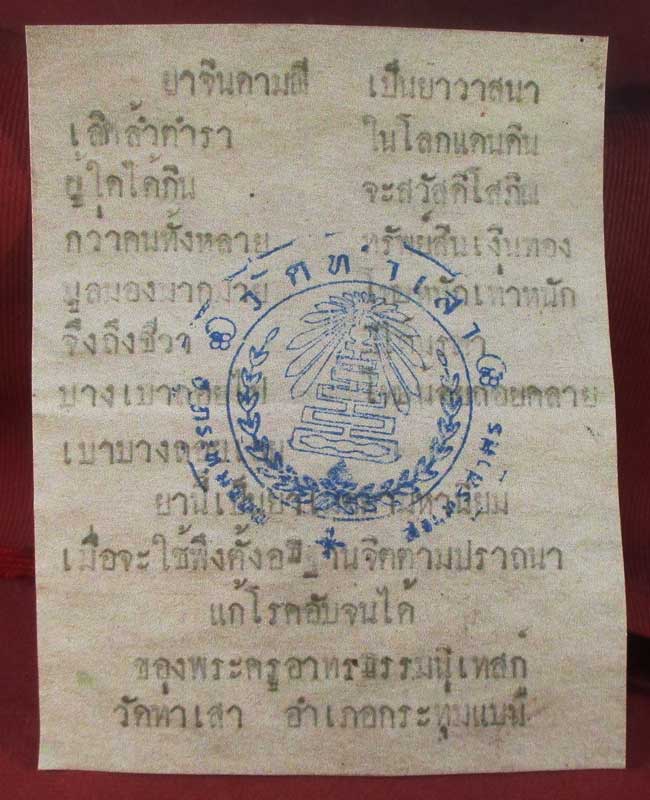 ยาจินดามณี เป็นยาวาสนา
เลิศล้ำตำรา ในโลกแดนดิน
ผู้ใดได้กิน จะสวัสดิโสภิณ
กว่าคนทั้งหลาย ทรัพย์สินเงินทอง
มูลมองมากมาย โรคหนักเท่าหนัก
จึงถึงชีวา
บางเบา
เบาบาง
ยานี้เป็นยา มหานิยม
เมื่อจะใช้พึงตั้งอธิฐานจิตตามปราถนา
แก้โรคอับจนได้
ของพระครูอาทรธรรมนิเทสก์
วัดทาเสา อำเภอกระทุมแบน
วัดท่าเสา
สมุทรสาคร